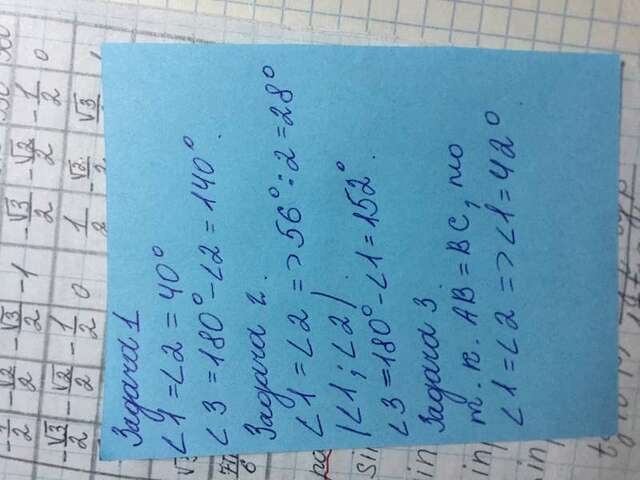 -1/2 -√2/2 -√3/2 -1 -√3/2 -√2/2 -1/2 0
-√3/2 -√2/2 -1/2 0 1/2 -√2/2 √3/2
Задача 1
∠1 = ∠2 = 40°
∠3 = 180° - ∠2 = 140°.
Задача 2.
∠1 = ∠2 => 56° : 2 = 28°
|∠1; ∠2|.
∠3 = 180° - ∠1 = 152°.
Задача 3.
т. к. AB = BC, то
∠1 = ∠2 => ∠1 = 42°